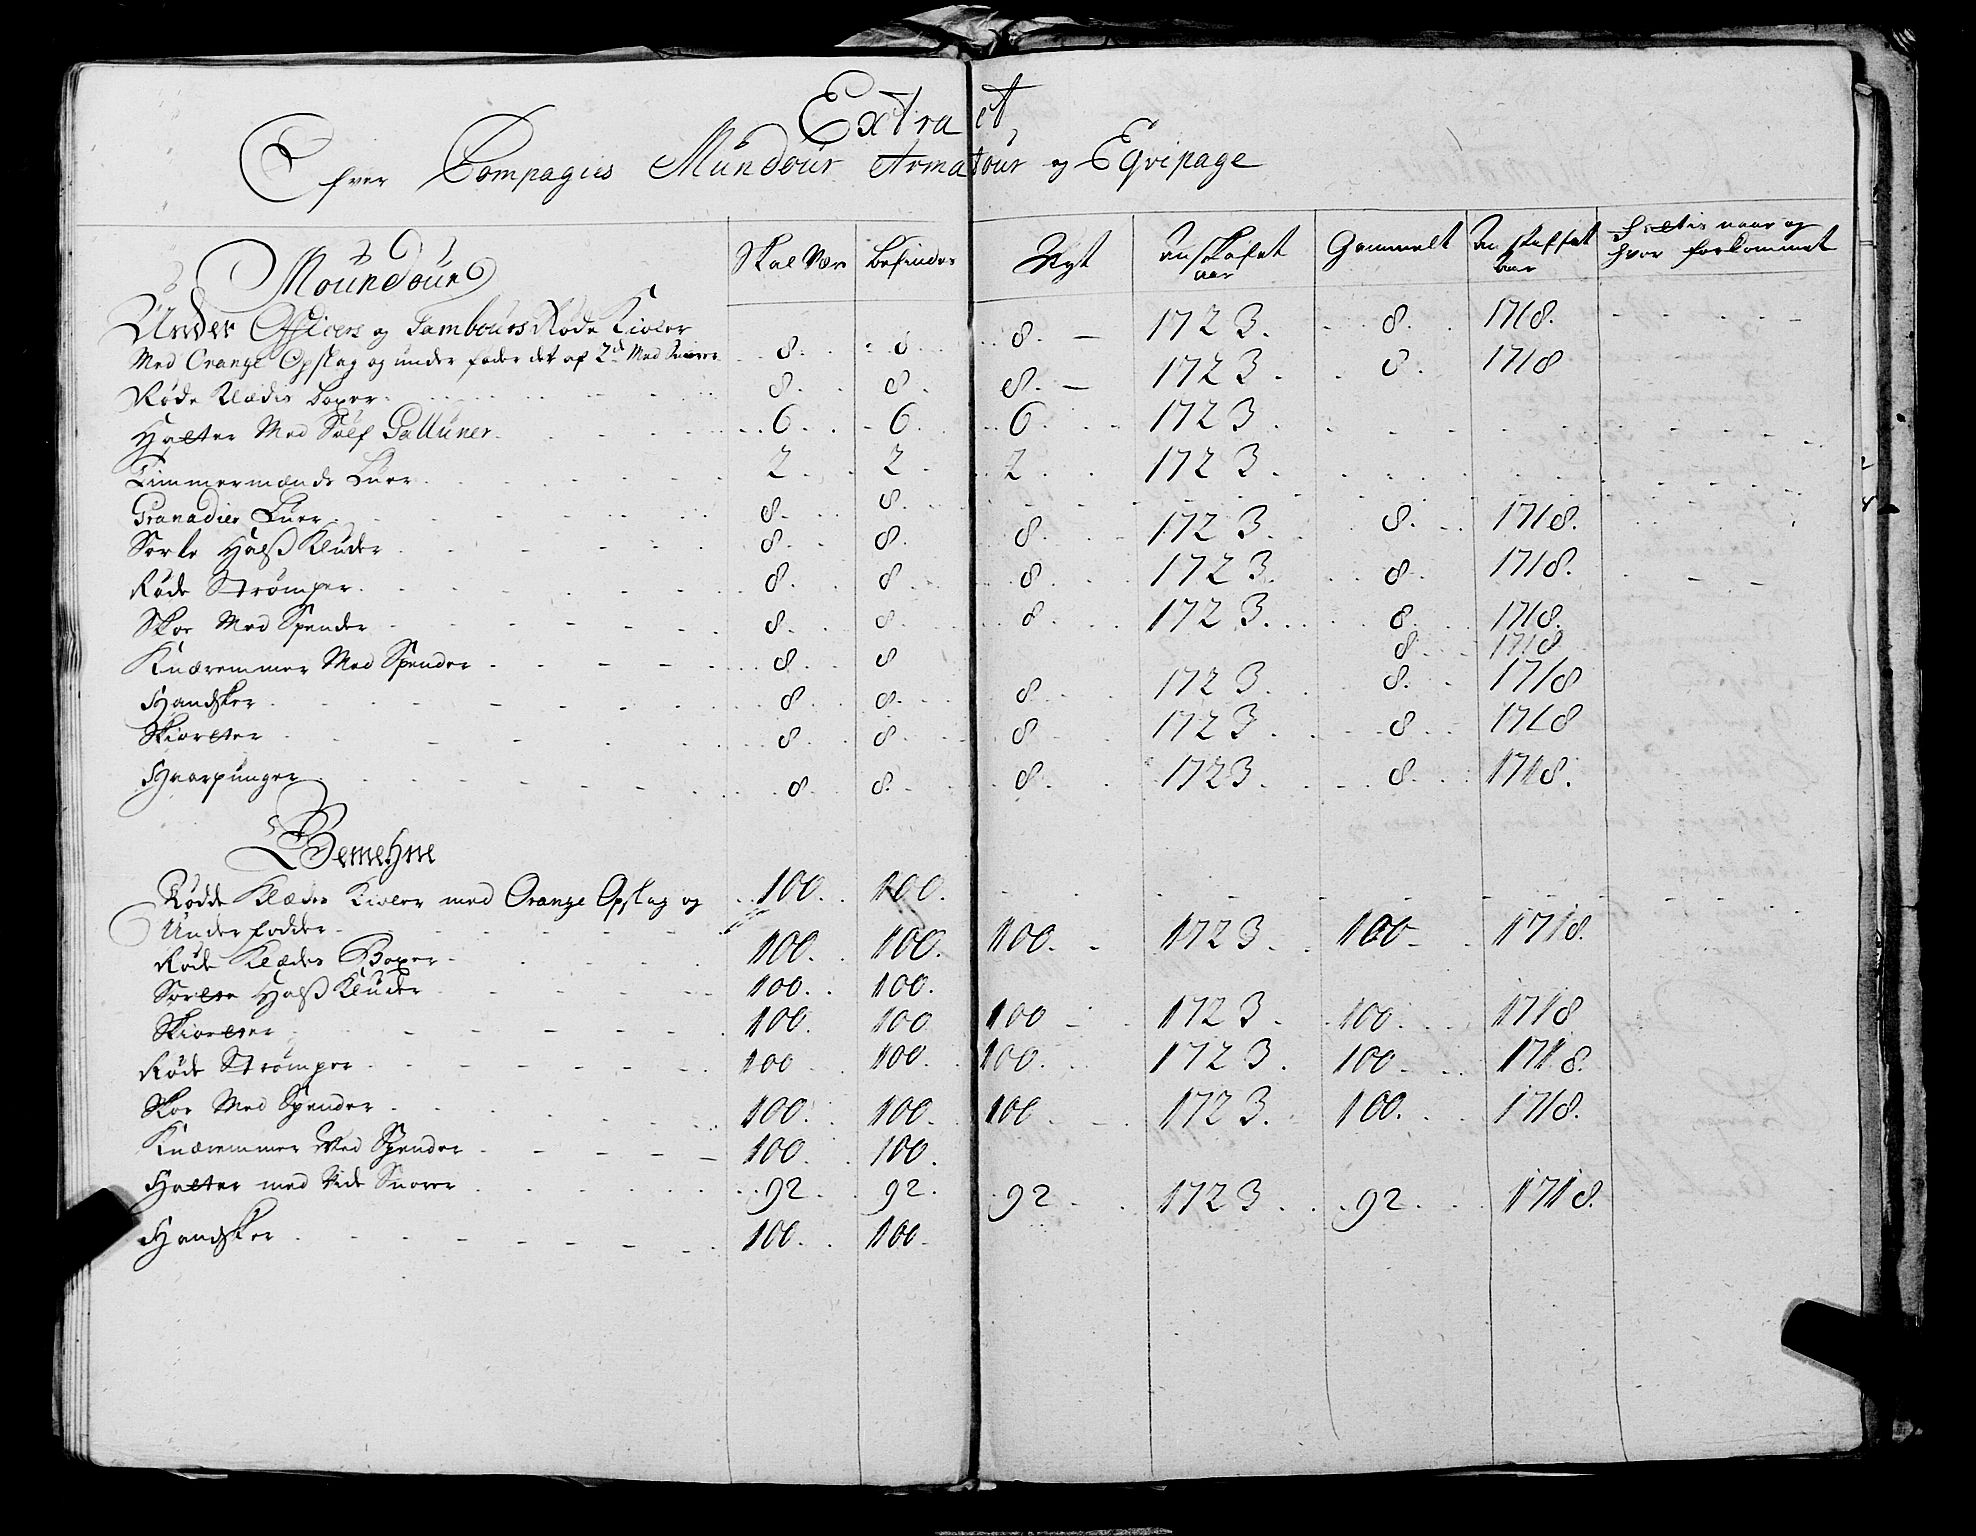 Extract
Ofver Compagies Mundour Armatour og Eqvipage
Moundour Skal Vær befindes Nyt anskafet aar Gammelt anskaffet aar Hvor forkommet
Under Officers og Tambours Røde Kioler
Med Orange Opslag og under foder det af 2d Med Snorer 8 8 8 1723. 8. 1718.
Røde Klædes boxer 8. 8. 8. 1723. 8. 1718
Hatter Med Sølf Galluner 6 6. 6. 1723.
Timmermænds Luer 2 2 2 1723.
Granadier Luer 8. 8.
Sorte Halss Kluder 8. 8. 8. 1723. 8. 1718.
Røde Strømper 8. 8. 8. 1723. 8. 1718.
Skoe Med Spender 8. 8. 8. 1723. 8. 1718.
Knæremmer Med Spender 8 8 8. 1718
Handsker 8 8. 8 1723. 8. 1718
Skiorter 8 8. 8 1723. 8 1718
Haarpunger 8 8. 8. 1723. 8. 1718.
Gemehne
Rødde Klædes Kioler med Orange Opslag og 100. 100.
Underfodder
Røde Klædes Boxer 100. 100. 100. 1723. 100. 1718.
Sorte Halss Kluder 100. 100.
Skiorter 100. 100 100 1723. 100. 1718
Røde Strømper 100 100. 100. 1723. 100. 1718.
Skoe Med Spender 100. 100. 100 1723. 100. 1718.
Knæremmer Med Spender 100. 100.
Hatter med Vide Snorer 92. 92. 92 1723. 92. 1718.
Handsker 100. 100.